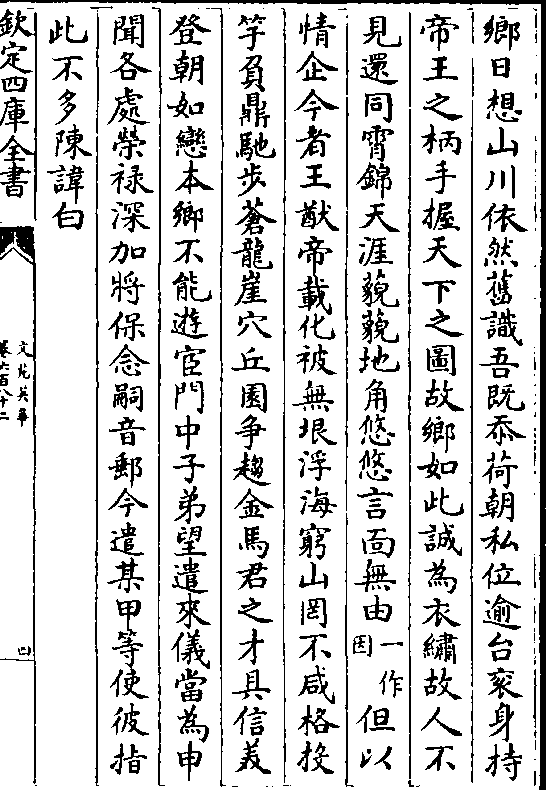 鄉日想山川依然舊識吾既忝荷朝私位逾台衮身持
帝王之柄手握天下之圖故鄉如此誠為衣繡故人不
見還同宵錦天涯藐藐地角悠悠言面無由一作因但以
情企今者王猷帝載化被無垠浮海窮山罔不咸格投
竿負鼎馳步蒼龍崖穴丘園争趨金馬君之才具信美
登朝如戀本鄉不能遊宦門中子弟望遣來儀當為申
聞各處榮禄深加將保念嗣音郵今遣某甲等使彼指
此不多陳諱白
欽定四庫全書
文苑英華
卷六百八十二
四